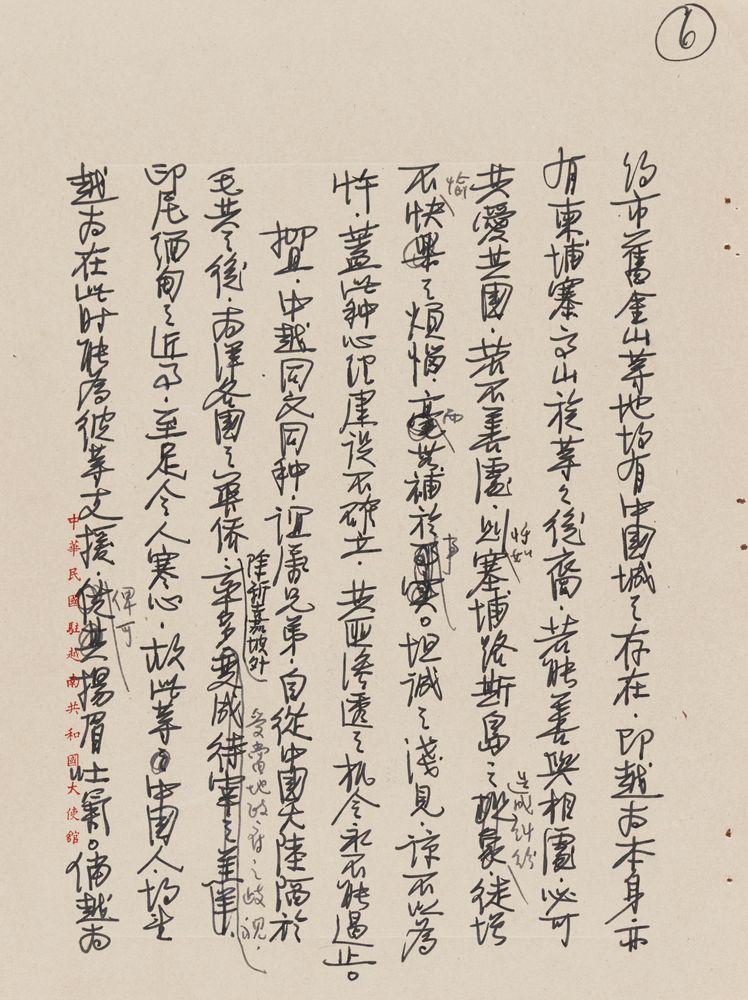 6
約市舊金山等地均有中國城之存在，即越南本身亦
有柬埔寨高山族等之後裔，若能善與相處必可
共愛其國，若不善處，則恰如塞埔路斯島之造成糾紛，徒增
不愉快之煩惱，而無補於事實。坦誠之淺見，諒不以為
忤，蓋此種心理建設不確立，共匪滲透之机会永不能遏止。
揑，中越同文同種，誼屬兄弟，自從中國大陸陷於
毛共之後，南洋各國之華僑，除新嘉坡外辛多受當地政府之歧視，
印尼緬甸之近事，至足令人寒心，故此等中國人，均
越南在此时能為彼等支援，俾可揚眉吐氣。倘越南
中華民國駐越南共和國大使館